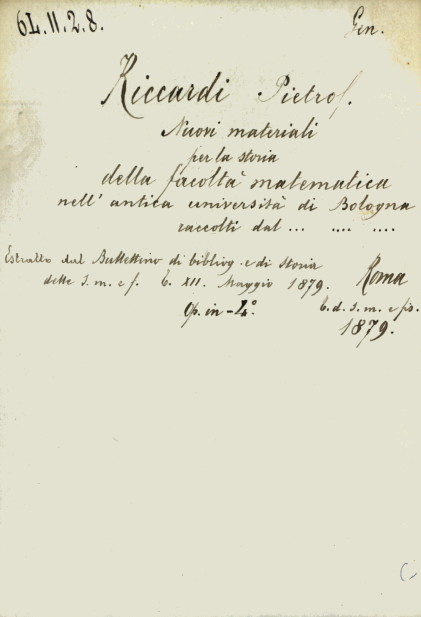 6L.II.2.8. Gen.
Riccardi Pietro f.
Nuovi materiali
per la storia
della facoltà matematica
nell'antica università di Bologna
raccolti dal ... .... ....
Estratto dal Bullettino di bibliog. e di storia
delle S. m. e f. T. XII. Maggio 1879. Roma
Op. in-4.° T. d. S. m. e fis.
1879.